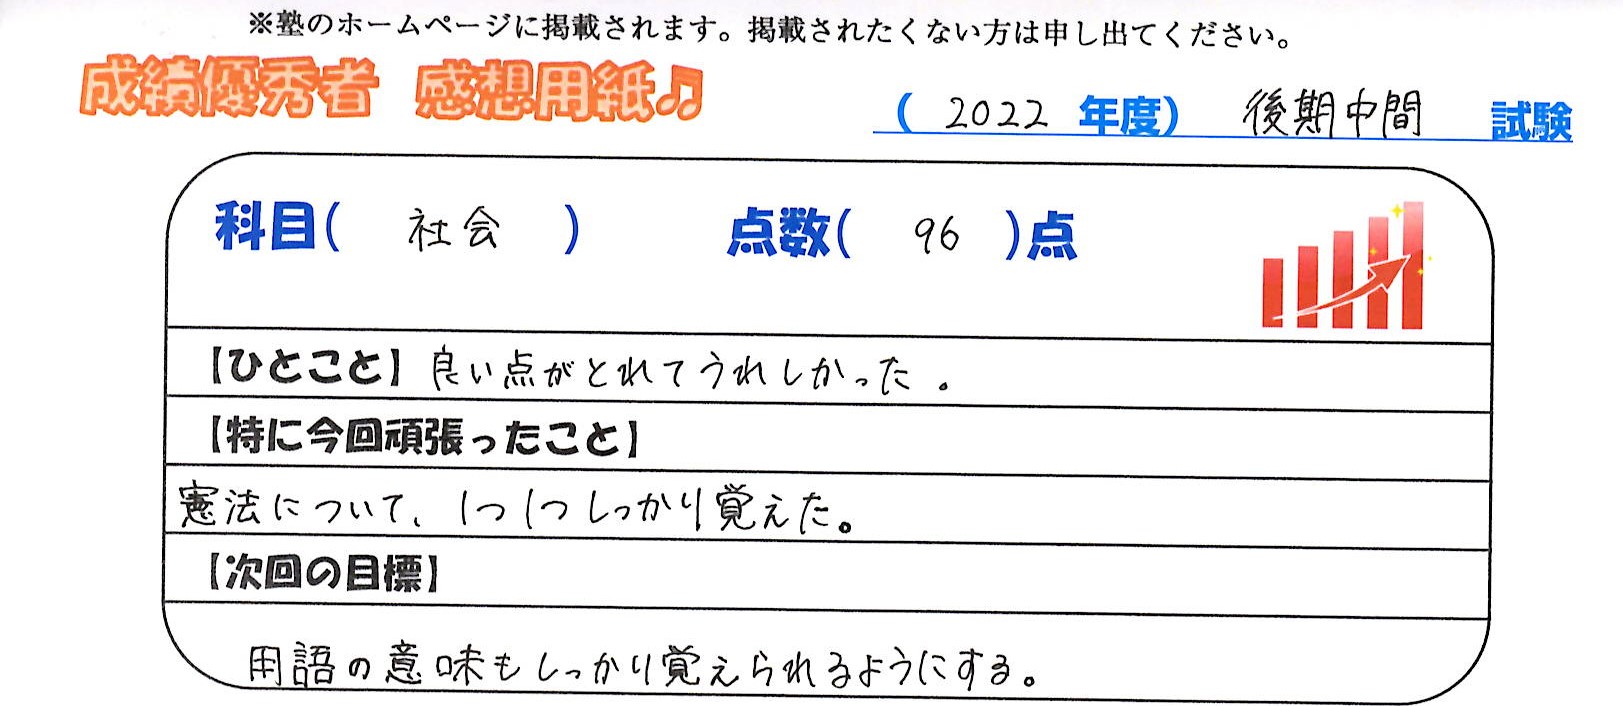 ※塾のホームページに掲載されます。掲載されたくない方は申し出てください。
成績優秀者 感想用紙♫
( 2022 年度) 後期中間 試験
科目( 社会 ) 点数( 96 )点
【ひとこと】良い点がとれてうれしかった。
【特に今回頑張ったこと】
憲法について、1つ1つしっかり覚えた。
【次回の目標】
用語の意味もしっかり覚えられるようにする。